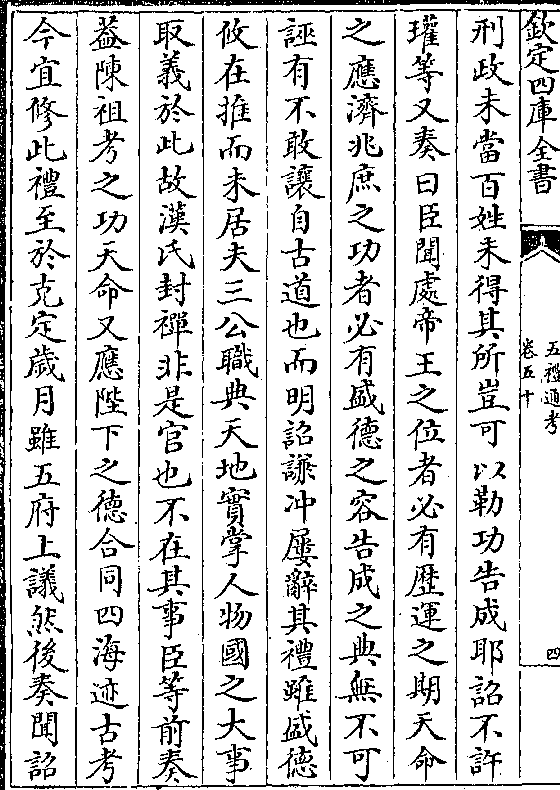 欽定四庫全書
五禮通考
卷五十
四
刑政未當百姓未得其所豈可以勒功告成耶詔不許
瓘等又奏曰臣聞處帝王之位者必有歴運之期天命
之應濟兆庶之功者必有盛德之容告成之典無不可
誣有不敢讓自古道也而明詔謙冲屢辭其禮雖盛德
攸在推而未居夫三公職典天地實掌人物國之大事
取義於此故漢氏封禪非是官也不在其事臣等前奏
葢陳祖考之功天命又應陛下之德合同四海迹古考
今宜修此禮至於克定歲月雖五府上議然後奏聞詔